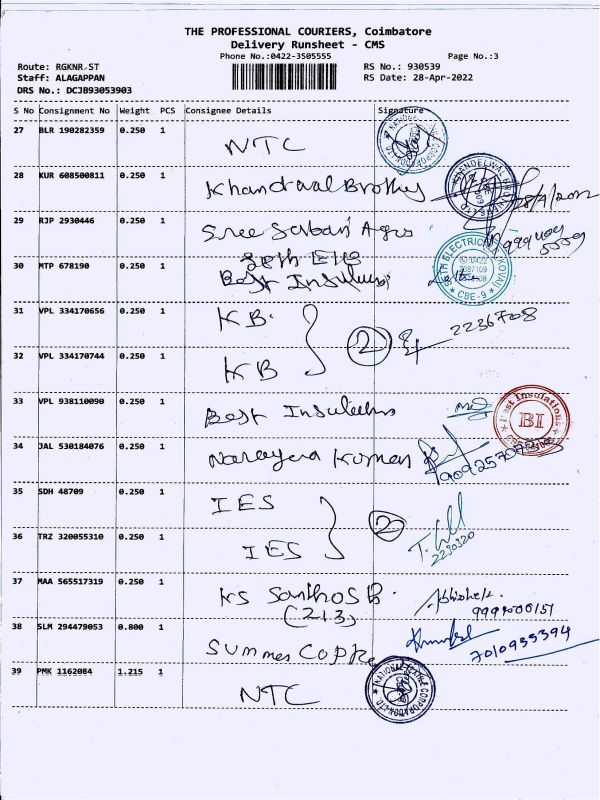 THE PROFESSIONAL COURIERS, Coimbatore
Delivery Runsheet - CMS
Phone No.:0422-3505555 Page No.:3
Route: RGKNR ST RS No.: 930539
Staff: ALAGAPPAN RS Date: 28-Apr-2022
DRS No.: DCJB93053903
S No Consignment No Weight PCS Consignee Details Signature
27 BLR 190282359 0.250 1
NTC
28 KUR 608500811 0.250 1
Khandelwal Brothers
28/4/2022
29 RJP 2930446 0.250 1
Sree Sarbari Agro
30 MTP 678190 0.250 1
Seth Ele
Best Insulations
SETH ELECTRICALS
CBE-9
31 VPL 334170656 0.250 1
KB
2 2236708
32 VPL 334170744 0.250 1
KB
33 VPL 938110090 0.250 1
Best Insulations
Best Insulations
BI
34 JAL 530184076 0.250 1
Narayana Kumar
35 SDH 48709 0.250 1
IES
2
36 TRZ 320055310 0.250 1
IES
2230320
37 MAA 565517319 0.250 1
KS Santhosh
(213)
Abhishek
38 SLM 294479053 0.800 1
Summer Coppe
7010935394
39 PMK 1162084 1.215 1
NTC